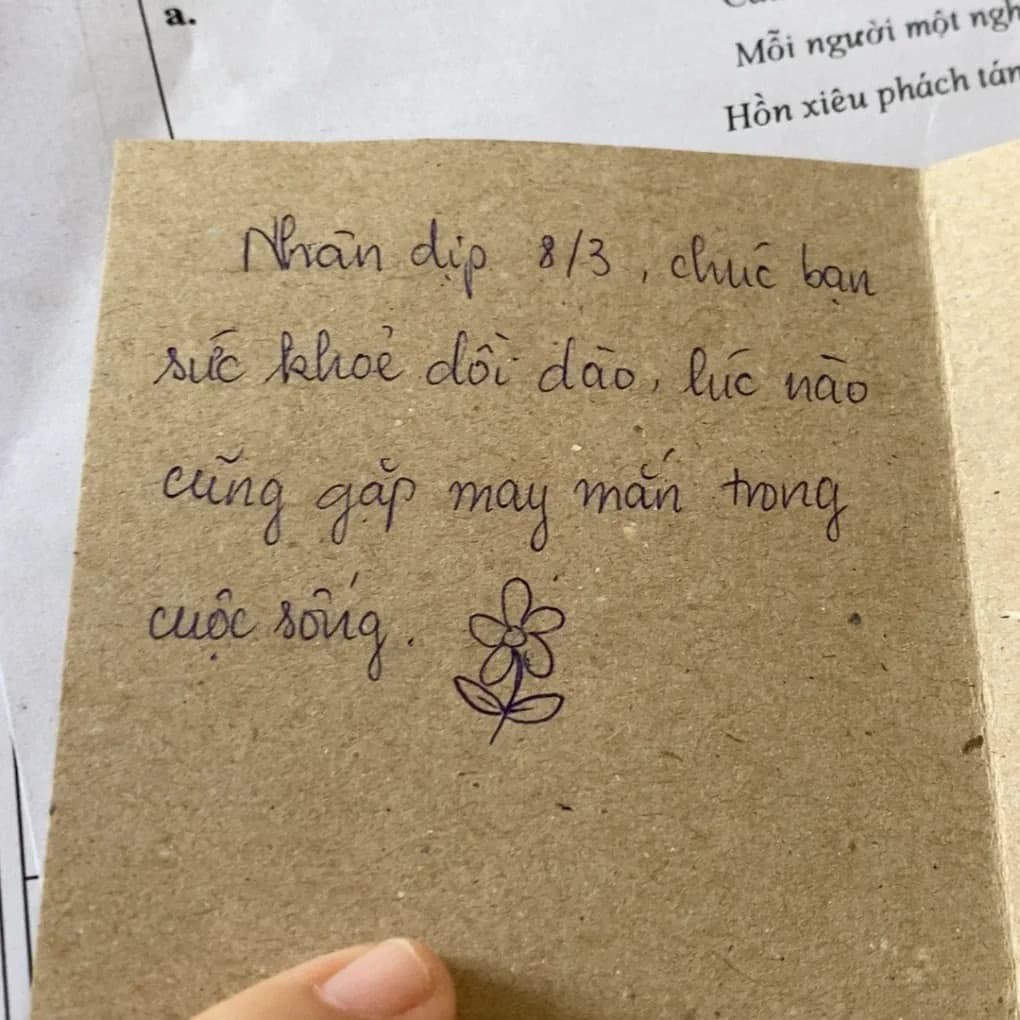 a.
Mỗi người một
Hồn xiêu phách
Nhân dịp 8/3, chúc bạn
sức khoẻ dồi dào, lúc nào
cũng gặp may mắn trong
cuộc sống.